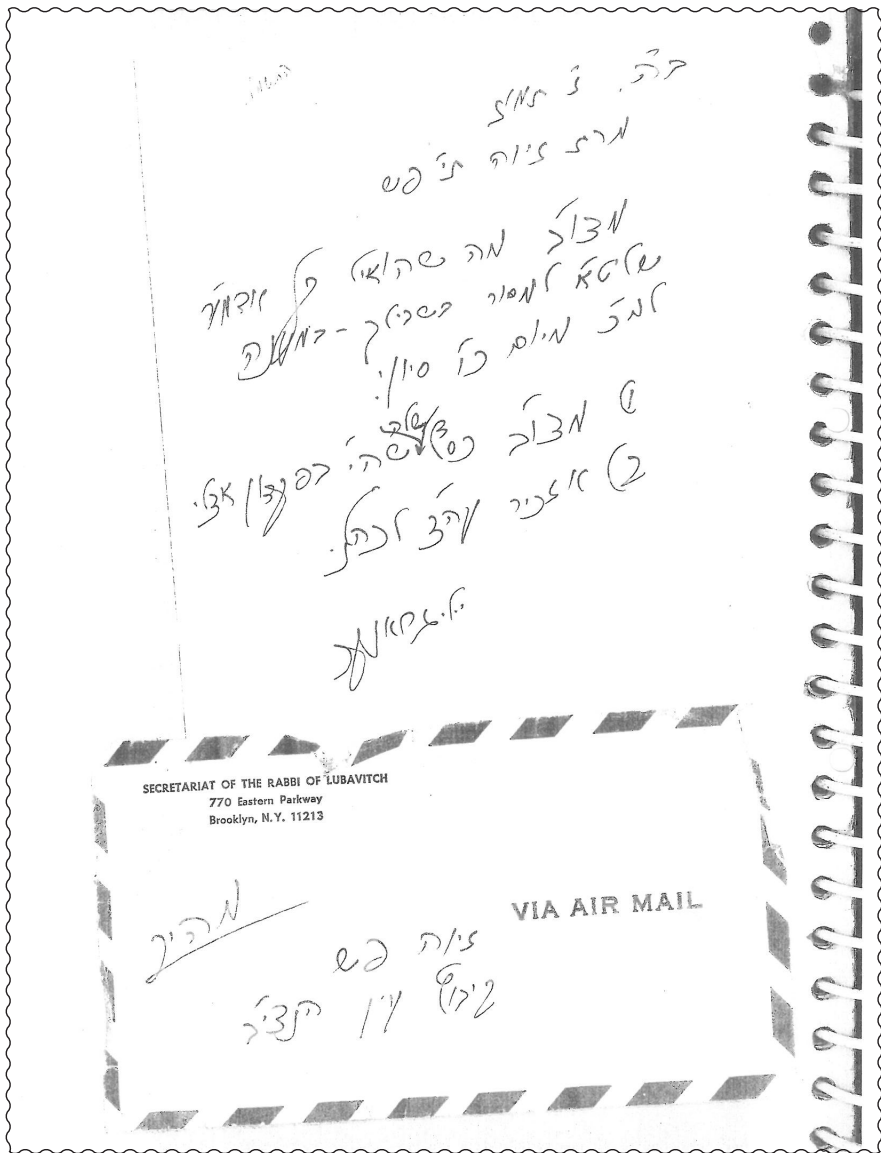 ב"ה. ז' תמוז
מרת זיוה תי' פש
מצו"ב מה שהואיל כ"ק אדמו"ר
שליט"א למסור בשבילך - במענה
למכ' מיום כ"ו סיון:
1) מצו"ב שלה' בפקדון אצלי.
2) אזכיר עה"צ
SECRETARIAT OF THE RABBI OF LUBAVITCH
770 Eastern Parkway
Brooklyn, N.Y. 11213
VIA AIR MAIL
זיוה פש
קיבוץ עין הנצי"ב